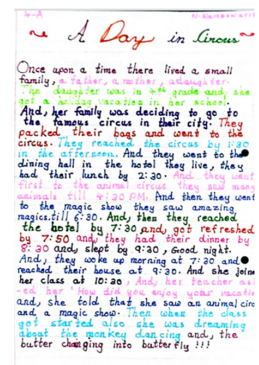 4-A
A Day in Circus
Once upon a time there lived a small
family, a father, a mother, a daughter.
The daughter was in 4th grade and, she
got a holiday vacation in her school.
And, her family was deciding to go to
the, famous circus in their city. They
packed their bags and went to the
circus. They reached the circus by 1:30
in the afternoon. And they went to the
dining hall in the hotel they live, they
had their lunch by 2:30. And they went
first to the animal circus they saw many
animals till 4:30 PM. And then they went
to the magic show they saw amazing
magics. till 6:30. And, then they reached
the hotel by 7:30 and, got refreshed
by 7:50 and, they had their dinner by
8:30 and, slept by 9:30, Good night.
And, they woke up morning at 7:30 and
reached their house at 9:30. And she joine
her class at 10:30, And, her teacher as
-ed her "How did you enjoy your vacatio
and, she told that she saw an animal circ
and a magic show. Then when the class
got started also she was dreaming
about the monkey dancing and, the
butter changing into butterfly !!!